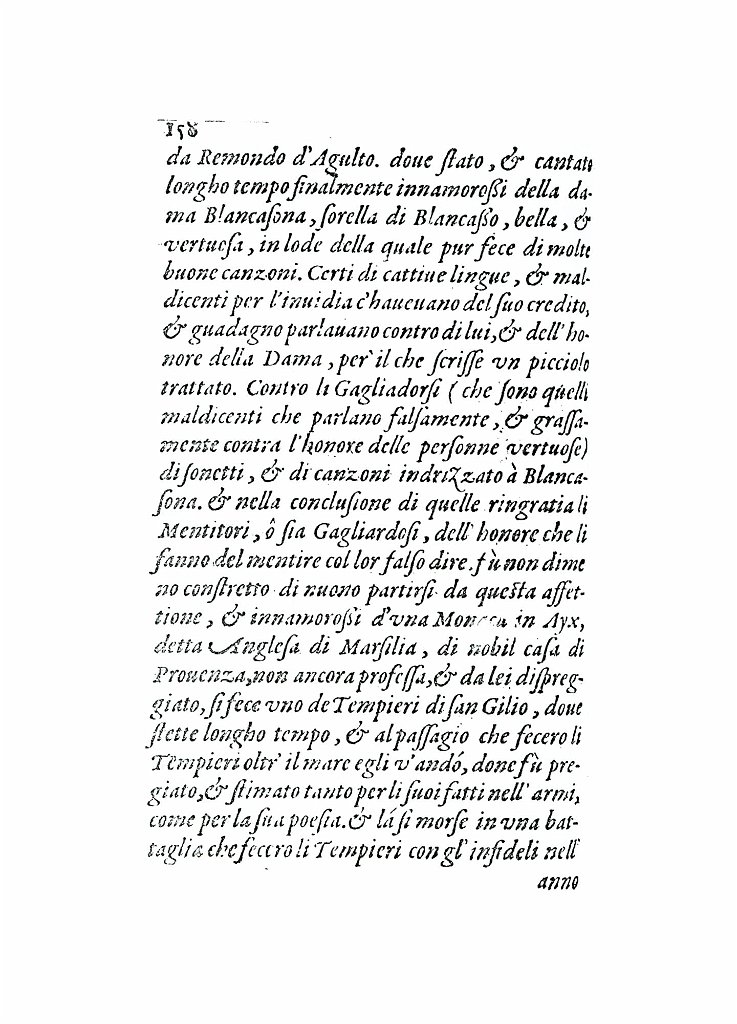 158
da Remondo d'Agulto. doue ſtato, & cantato
longho tempo finalmente innamoroſſi della da-
ma Blancaſona, ſorella di Blancaſſo, bella, &
vertueſa, in lode della quale pur fece di molte
buone canzoni. Certi di cattiue lingue, & mal-
dicenti per l'inuidia c'haueuano del ſuo credito,
& guadagno parlauano contro di lui, & dell'ho-
nore della Dama, per il che ſcriſſe vn picciolo
trattato. Contro li Gagliadorſi (che ſono quelli
maldicenti che parlano falſamente, & graſſa-
mente contra l'honore delle perſonne vertuoſe)
di ſonetti, & di canzoni indrizzato à Blanca-
ſona. & nella concluſione di quelle ringratia li
Mentitori, ò ſia Gagliardoſi, dell'honore che li
fanno del mentire col lor falſo dire. fù non dime
no conſtretto di nuono partirſi da queſta affet-
tione, & innamoroſſi d'vna in Ayx,
detta Angleſa di Marſilia, di nobil caſa di
Prouenza, non ancora profeſſa, & da lei diſpreg-
giato, ſi fece vno de Tempieri di ſan Gilio, doue
ſtette longho tempo, & al paſſagio che fecero li
Tēmpieri oltr'il mare egli v'andó, done fù pre-
giato, & ſtimato tanto per li ſuoi fatti nell'armi,
come per la ſua poeſia. & là ſi morſe in vna bat-
taglia che fecero li Tempieri con gl'infideli nell'
anno